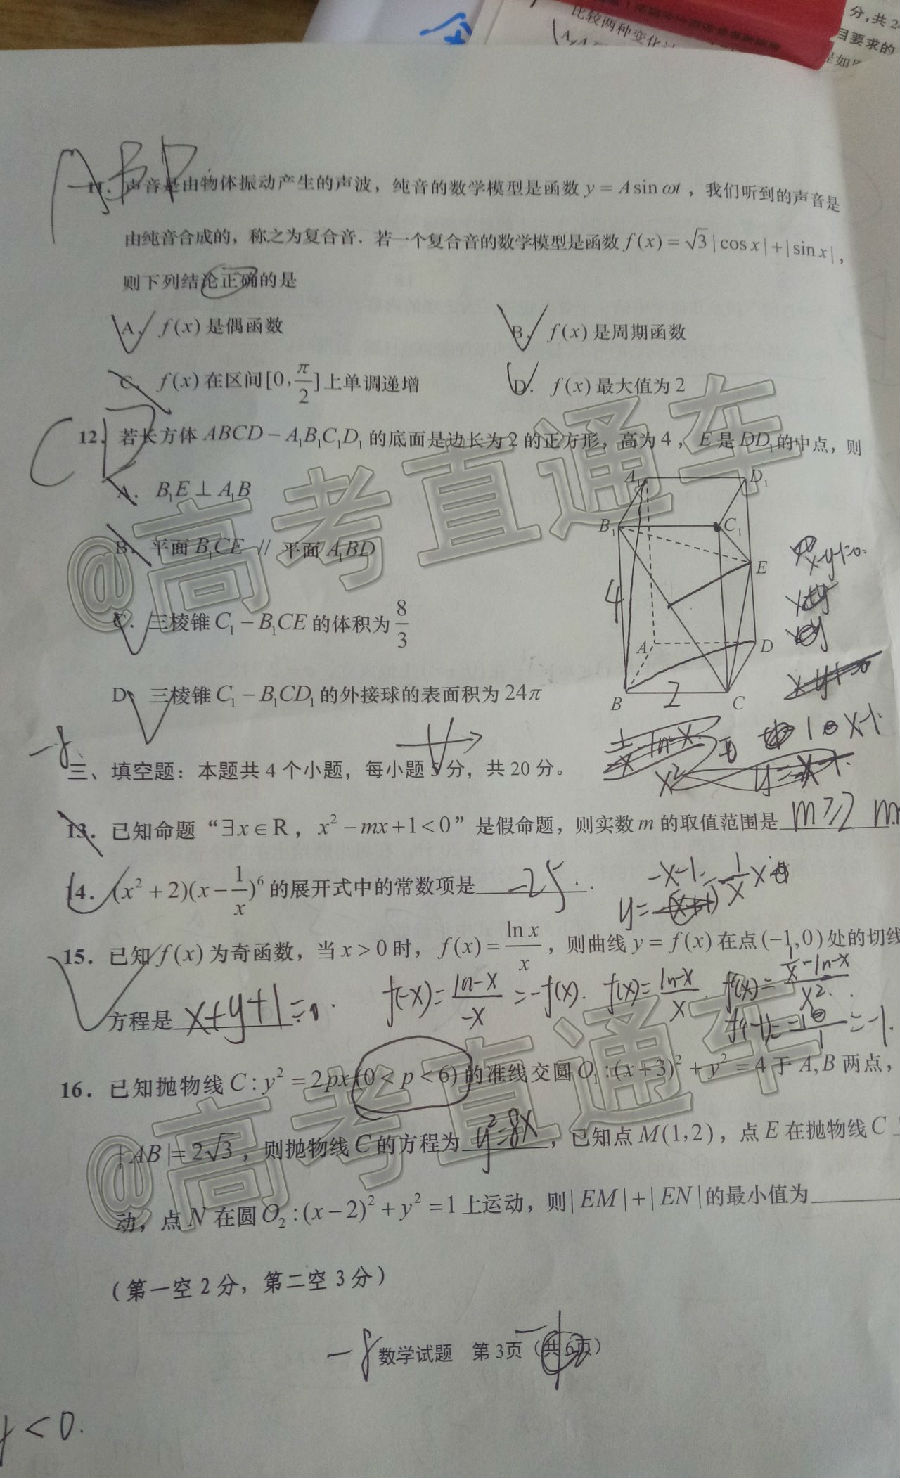 比较两种变化
分,共2
目要求的
ABD
11. 声音是由物体振动产生的声波，纯音的数学模型是函数 y = A sin ωt ，我们听到的声音是
由纯音合成的，称之为复合音．若一个复合音的数学模型是函数 f(x) = √3|cos x|+|sin x|，
则下列结论正确的是
A. f(x) 是偶函数 B. f(x) 是周期函数
C. f(x) 在区间[0, π/2]上单调递增 D. f(x) 最大值为 2
CD
12. 若长方体 ABCD − A₁B₁C₁D₁ 的底面是边长为 2 的正方形，高为 4 ，E 是 DD₁ 的中点，则
A. B₁E ⊥ A₁B
B. 平面 B₁CE // 平面 A₁BD
C. 三棱锥 C₁ − B₁CE 的体积为 8/3
D. 三棱锥 C₁ − B₁CD₁ 的外接球的表面积为 24π
A₁ D₁
B₁ C₁
E
4
A D
B 2 C
三、填空题：本题共 4 个小题，每小题 5 分，共 20 分。
13. 已知命题“∃x∈R，x² − mx + 1 < 0”是假命题，则实数 m 的取值范围是 m≥2
14. (x² + 2)(x − 1/x)⁶ 的展开式中的常数项是 -25 .
15. 已知 f(x) 为奇函数，当 x > 0 时，f(x) = ln x/x ，则曲线 y = f(x) 在点(−1,0) 处的切线
方程是 x+y+1=0 . f(-x)= ln-x/-x = -f(x). f(x)= ln-x/x
16. 已知抛物线 C : y² = 2px(0 < p < 6) 的准线交圆 O₁ : (x+3)² + y² = 4 于 A, B 两点，
|AB| = 2√3 ，则抛物线 C 的方程为 y²=8x ，已知点 M(1,2)，点 E 在抛物线 C 上
动，点 N 在圆 O₂ : (x − 2)² + y² = 1 上运动，则 |EM| + |EN| 的最小值为
（第一空 2 分，第二空 3 分）
数学试题 第 3页（共 6页）
y<0.
@高考直通车
@高考直通车